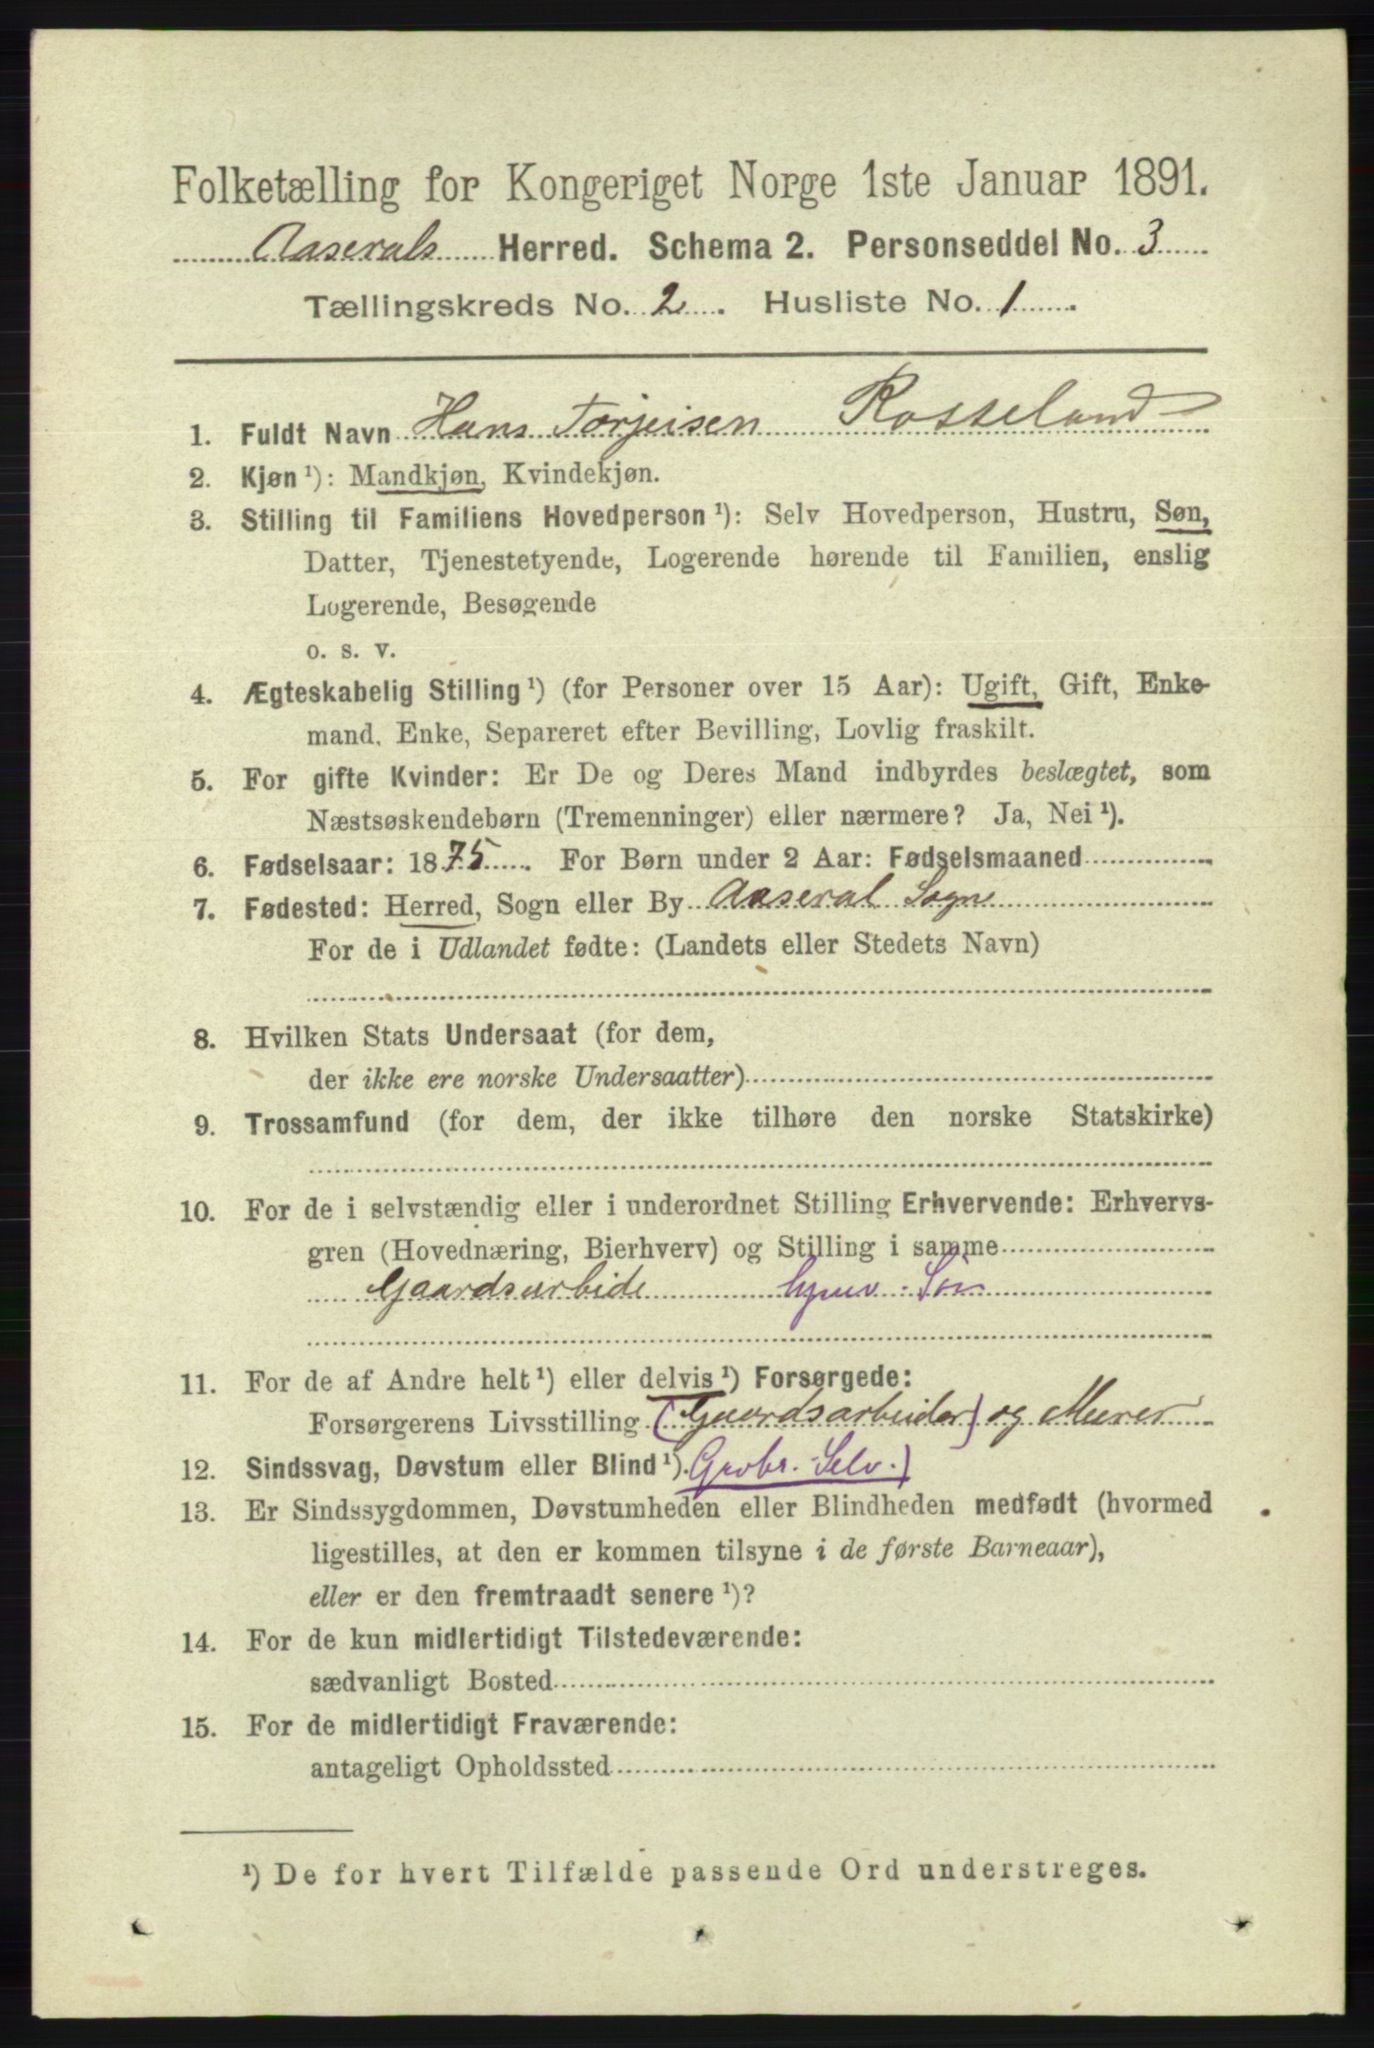 Folketælling for Kongeriget Norge 1ste Januar 1891.
Aaserals Herred. Schema 2. Personseddel No. 3
Tællingskreds No. 2. Husliste No. 1.
1. Fuldt Navn Hans Torjeisen Rosseland
2. Kjøn ¹): Mandkjøn, Kvindekjøn.
3. Stilling til Familiens Hovedperson ¹): Selv Hovedperson, Hustru, Søn,
Datter, Tjenestetyende, Logerende hørende til Familien, enslig
Logerende, Besøgende
o. s. v.
4. Ægteskabelig Stilling ¹) (for Personer over 15 Aar): Ugift, Gift, Enke-
mand, Enke, Separeret efter Bevilling, Lovlig fraskilt.
5. For gifte Kvinder: Er De og Deres Mand indbyrdes beslægtet, som
Næstsøskendebørn (Tremenninger) eller nærmere? Ja, Nei ¹).
6. Fødselsaar: 1875. For Børn under 2 Aar: Fødselsmaaned
7. Fødested: Herred, Sogn eller By Aaseral Sogn
For de i Udlandet fødte: (Landets eller Stedets Navn)
8. Hvilken Stats Undersaat (for dem,
der ikke ere norske Undersaatter)
9. Trossamfund (for dem, der ikke tilhøre den norske Statskirke)
10. For de i selvstændig eller i underordnet Stilling Erhvervende: Erhvervs-
gren (Hovednæring, Bierhverv) og Stilling i samme
Gaardsarbide Søn
11. For de af Andre helt ¹) eller delvis ¹) Forsørgede:
Forsørgerens Livsstilling (Gaardsarbeider) og Murer
12. Sindssvag, Døvstum eller Blind ¹). Grbr. Selv.)
13. Er Sindssygdommen, Døvstumheden eller Blindheden medfødt (hvormed
ligestilles, at den er kommen tilsyne i de første Barneaar),
eller er den fremtraadt senere ¹)?
14. For de kun midlertidigt Tilstedeværende:
sædvanligt Bosted
15. For de midlertidigt Fraværende:
antageligt Opholdssted
¹) De for hvert Tilfælde passende Ord understreges.